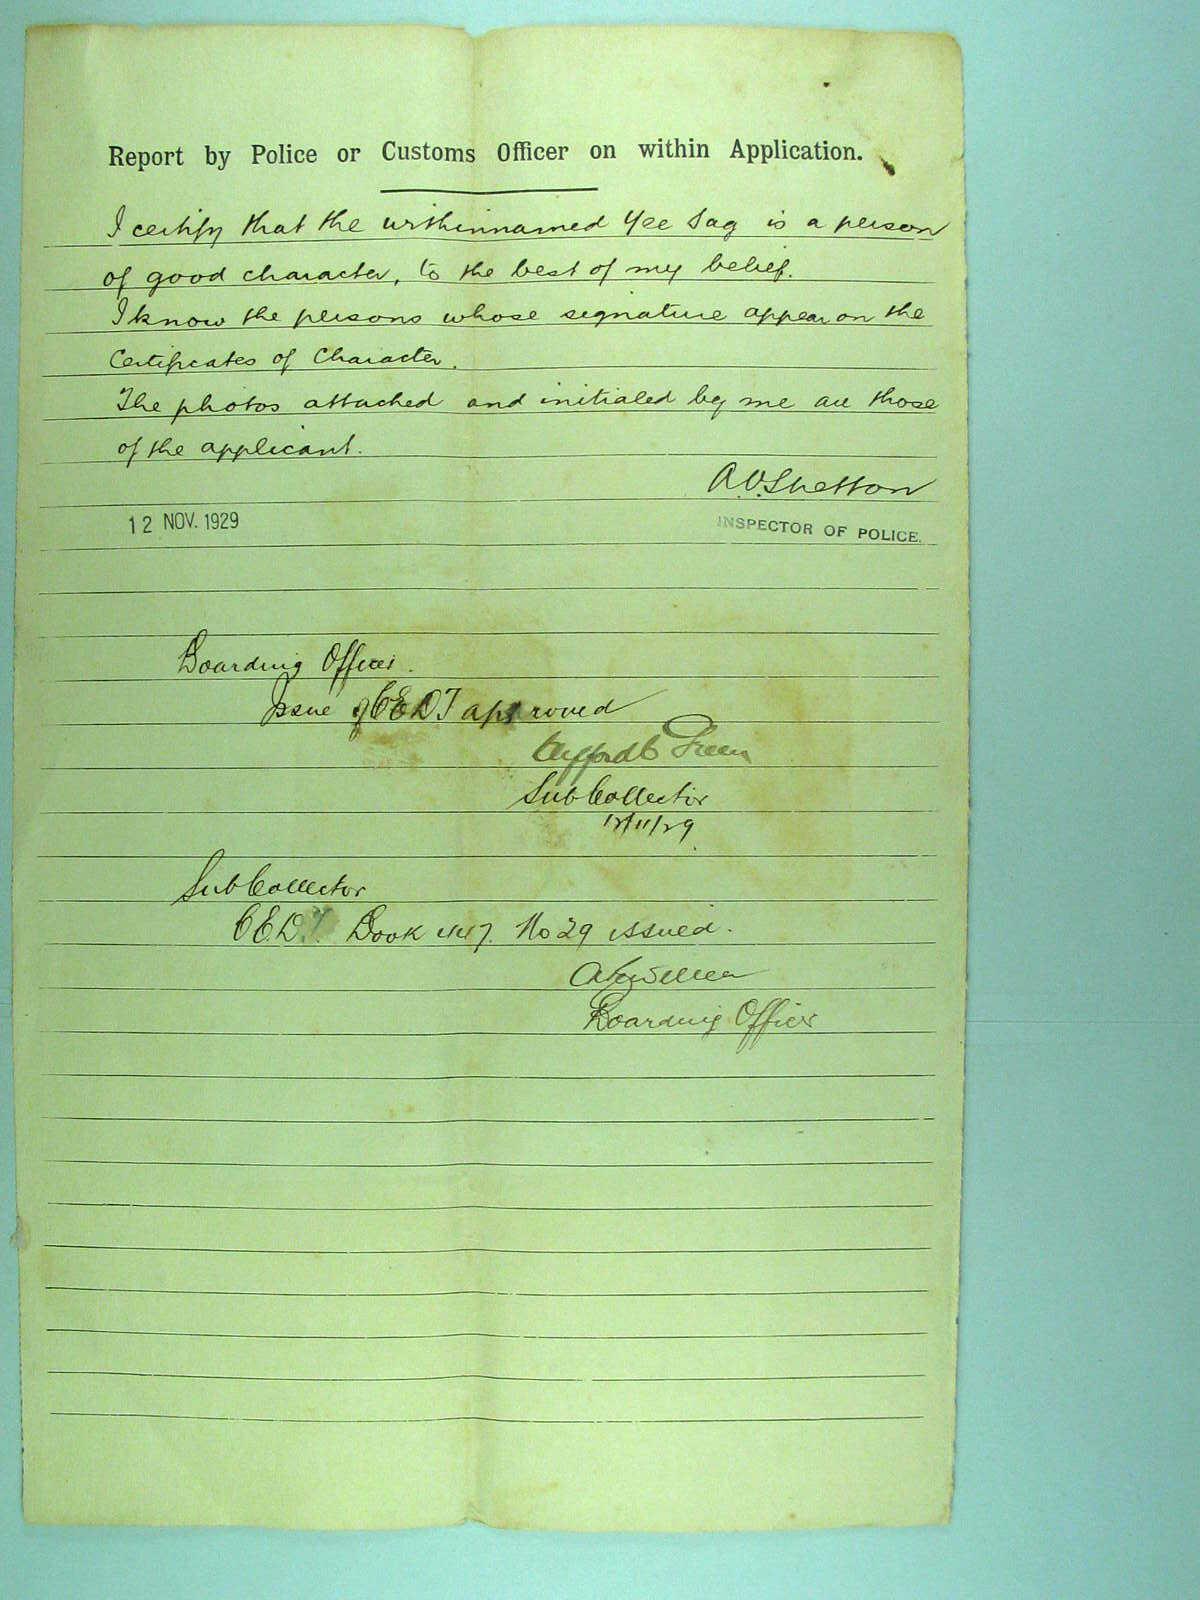 Report by Police or Customs Officer on within Application.
I certify that the withinnamed Yee Sag is a person
of good character, to the best of my belief.
I know the persons whose signature appear on the
Certificates of Character.
The photos attached and initialed by me are those
of the applicant.
A.O. Shelton
12 NOV. 1929
INSPECTOR OF POLICE.
Boarding Officer.
Issue of CEDT approved
Green
Sub Collector
12/11/29.
Sub Collector
C.E.D.T. Book No 29 issued.
Boarding Officer